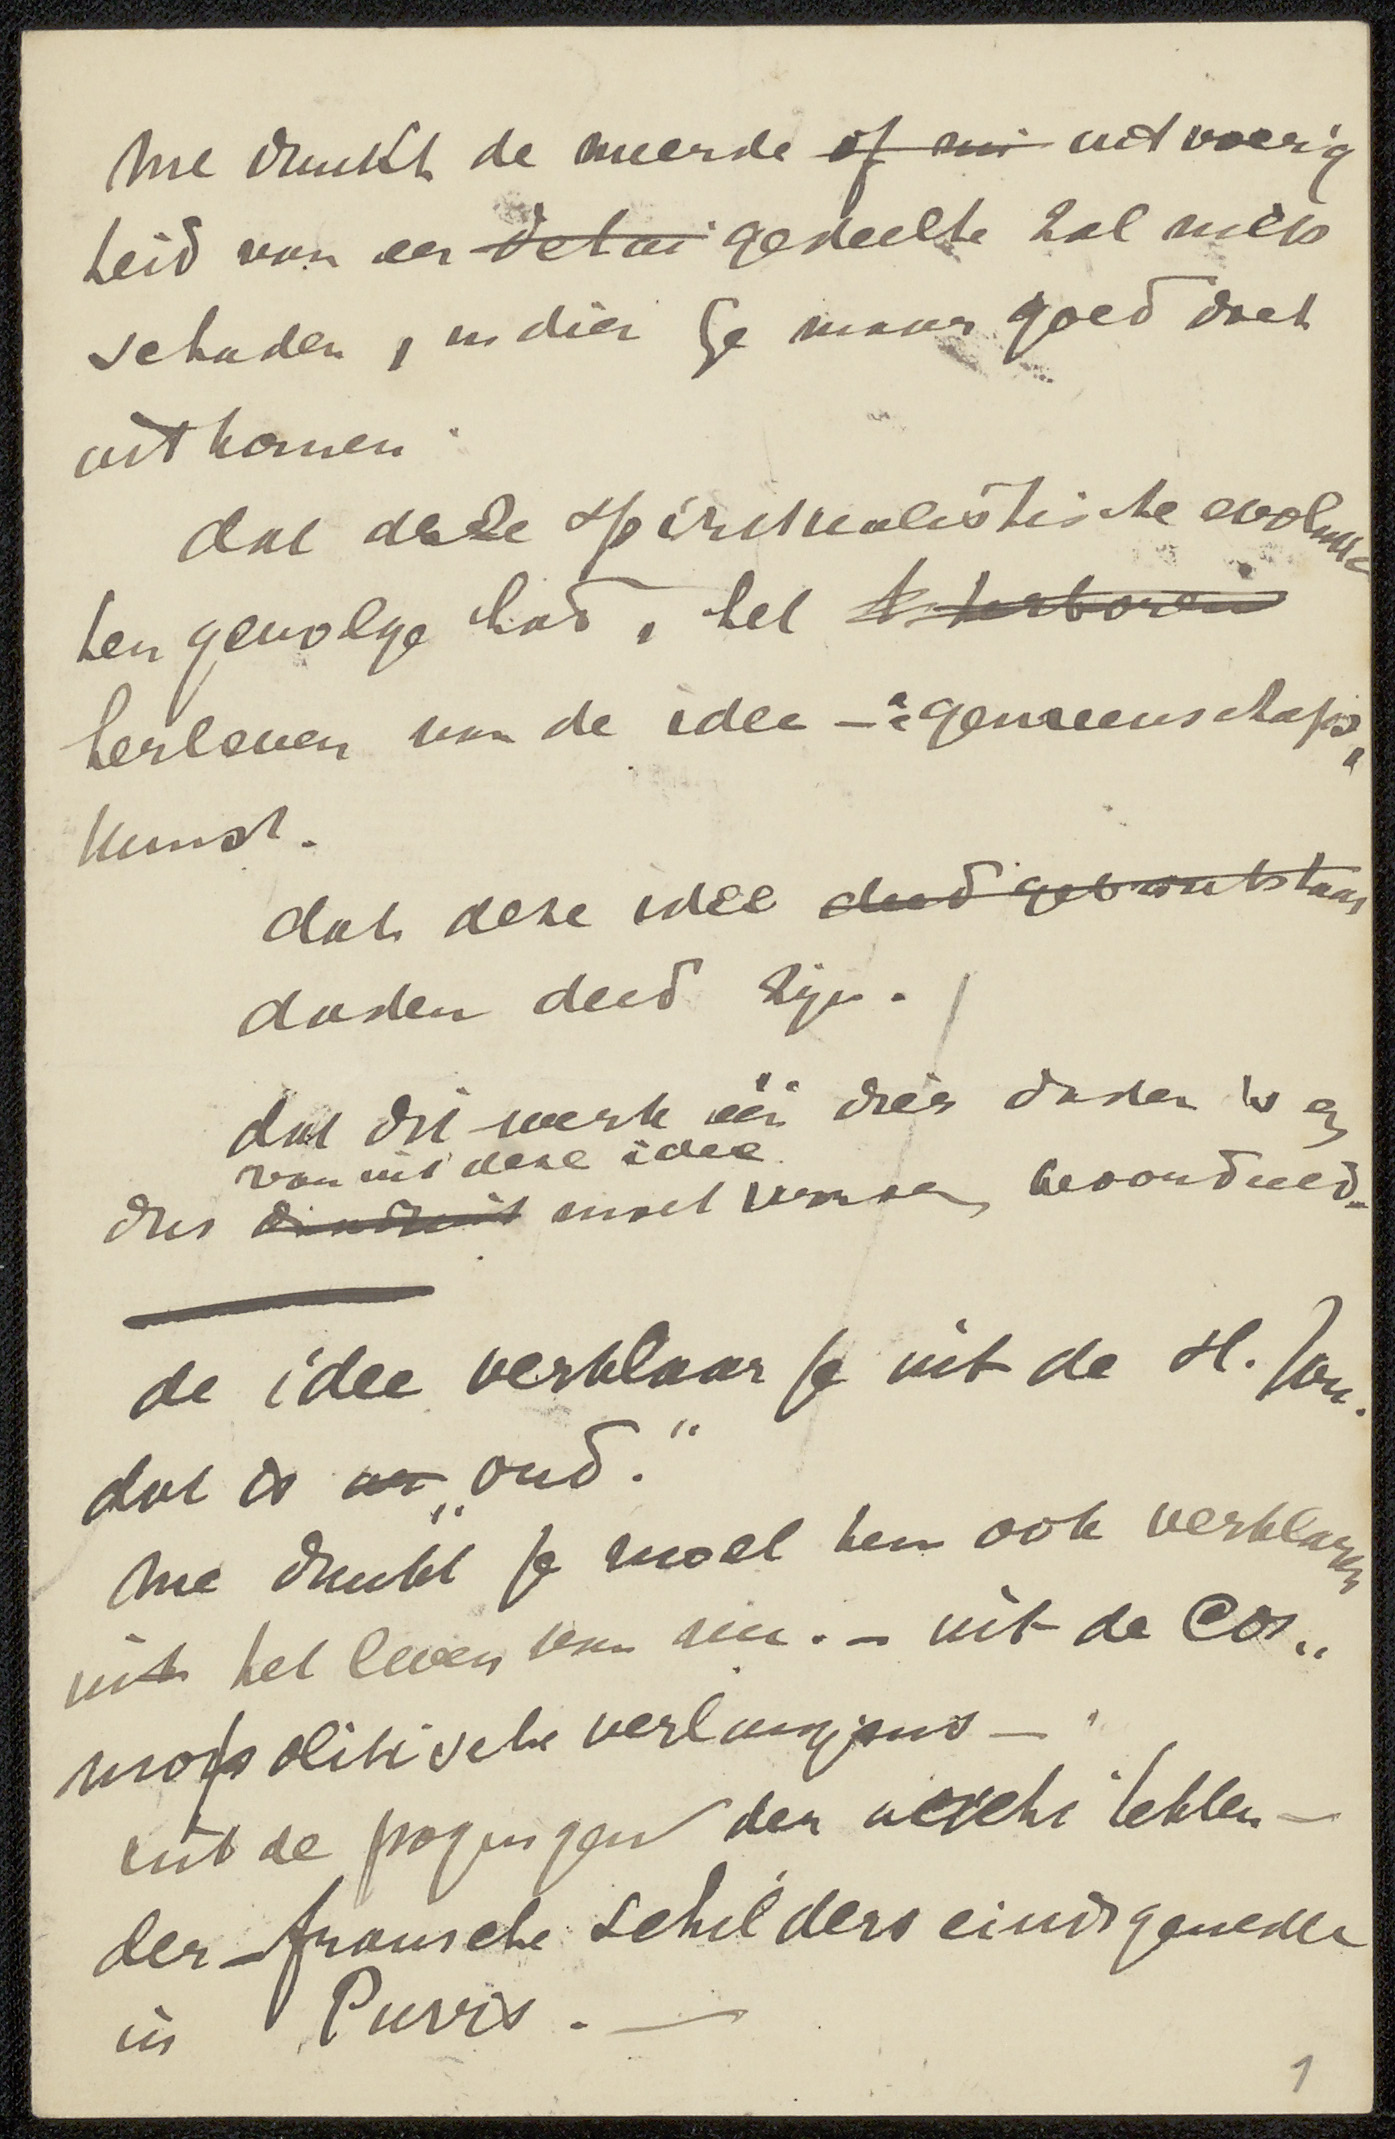 me dunkt de meerde of mi uitvoerig
heid van een detai gedeelte zal niets
schaden, indien je maar goed doet
uitkomen.
dat deze spiritualistische evolutie
ten gevolge had, het herboren
herleven van de idee - : gemeenschaps„
kunst.
dat deze idee deed gebr ontstaan
daden deed zijn.
dat dit werk één dier daden is en
van uit deze idee
dus daaruit moet worden beoordeeld.
de idee verklaar je uit de H.
dat is „oud.“
me dunkt je moet hem ook verklaren
uit het leven van nu. - uit de Cos„
mopolitische verlangens -
uit de pogingen der architekten -
der fransche schilders eindigende
in Puvis. -
1